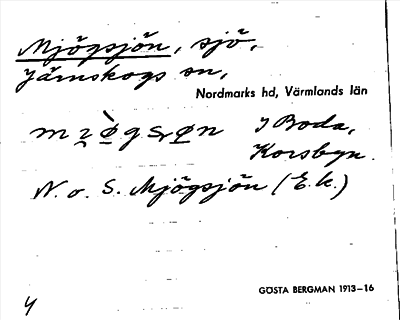 Mjögsjön, sjö,
Järnskogs sn,
Nordmarks hd, Värmlands län
I Boda,
Korsbyn.
N. o. S. Mjögsjön (E.k.)
GÖSTA BERGMAN 1913–16
4